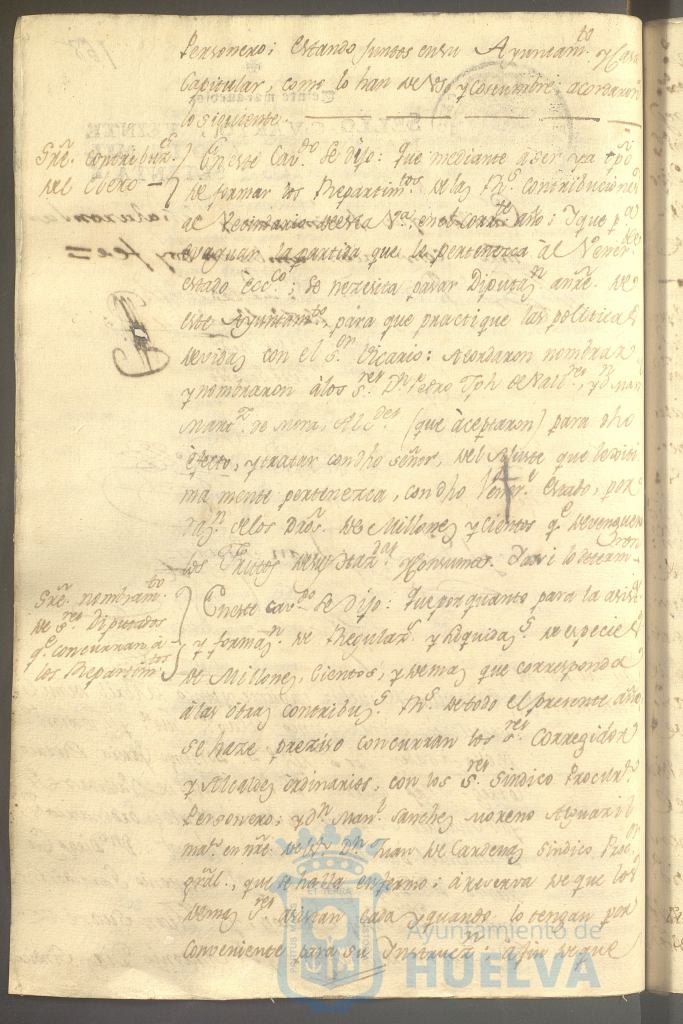 Personero; estando juntos en su Ayuntam.to y Casa
Capitular, como lo han de uso y costumbre; acordaron
lo siguiente.
Sre. contribuz.es
del Clero
En este Cav.do se dijo: que mediante a ser ya tpo
de formar los Repartim.tos de las R.s contribuciones
al Vecindario de esta V.a, en el corr.te año; y que p.a
evaquar la partida que le pertenezca àl Vener.
estado ecc.co; se nezesita pasar Diputaz.n
este Ayuntam.to, para que practique las politicas
devidas con el S.or Vicario: Acordaron nombrar
y nombraron à los S.res D.n Pedro Jph de y D.n Man.
Mart.z de Mora, (que àceptaron) para dho
efecto, y tratar con dho señor, del Ajuste que lexiti
mamente pertenezca, con dho Vener.e Estado, por
raz.n de los Dros. de Millones y Cientos q.e devenguen
los frutos de sus y Consumos. Y así lo determ.ron
Sre. nombram.to
de S.res Diputados
q.e concurran à
los Repartim.tos
En este Cav.do se dijo: que por quanto para la
y formaz.n de Regulaz.s y liquidaz.s de especies
de Millones, Cientos, y demas que corresponda
à las otras contribuz.s R.s de todo el presente año
se haze preziso concurran los S.res Corregidor
y Alcaldes ordinarios, con los S.res Sindico Procur.
Personero; y D.n Man.l Sanchez Moreno Alguacil
ma.r en nre. de D.n Juan de Cardenas Sindico Proc.or
gral., que se halla enfermo; à reserva de que los
demas S.res asistan cada y quando lo tengan por
conveniente para su Instrucz.n: a fin de que
Ayuntamiento de
HUELVA